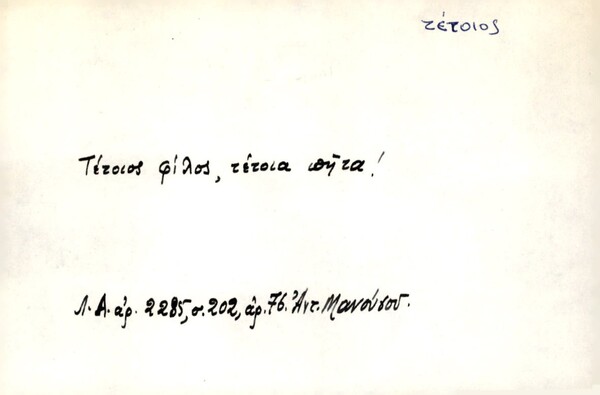 τέτοιος
Τέτοιος φίλος, τέτοια πῆτα!
Λ.Α. ἀρ. 2285, σ. 202, ἀρ. 76. Ἀντ. Μανούσου.